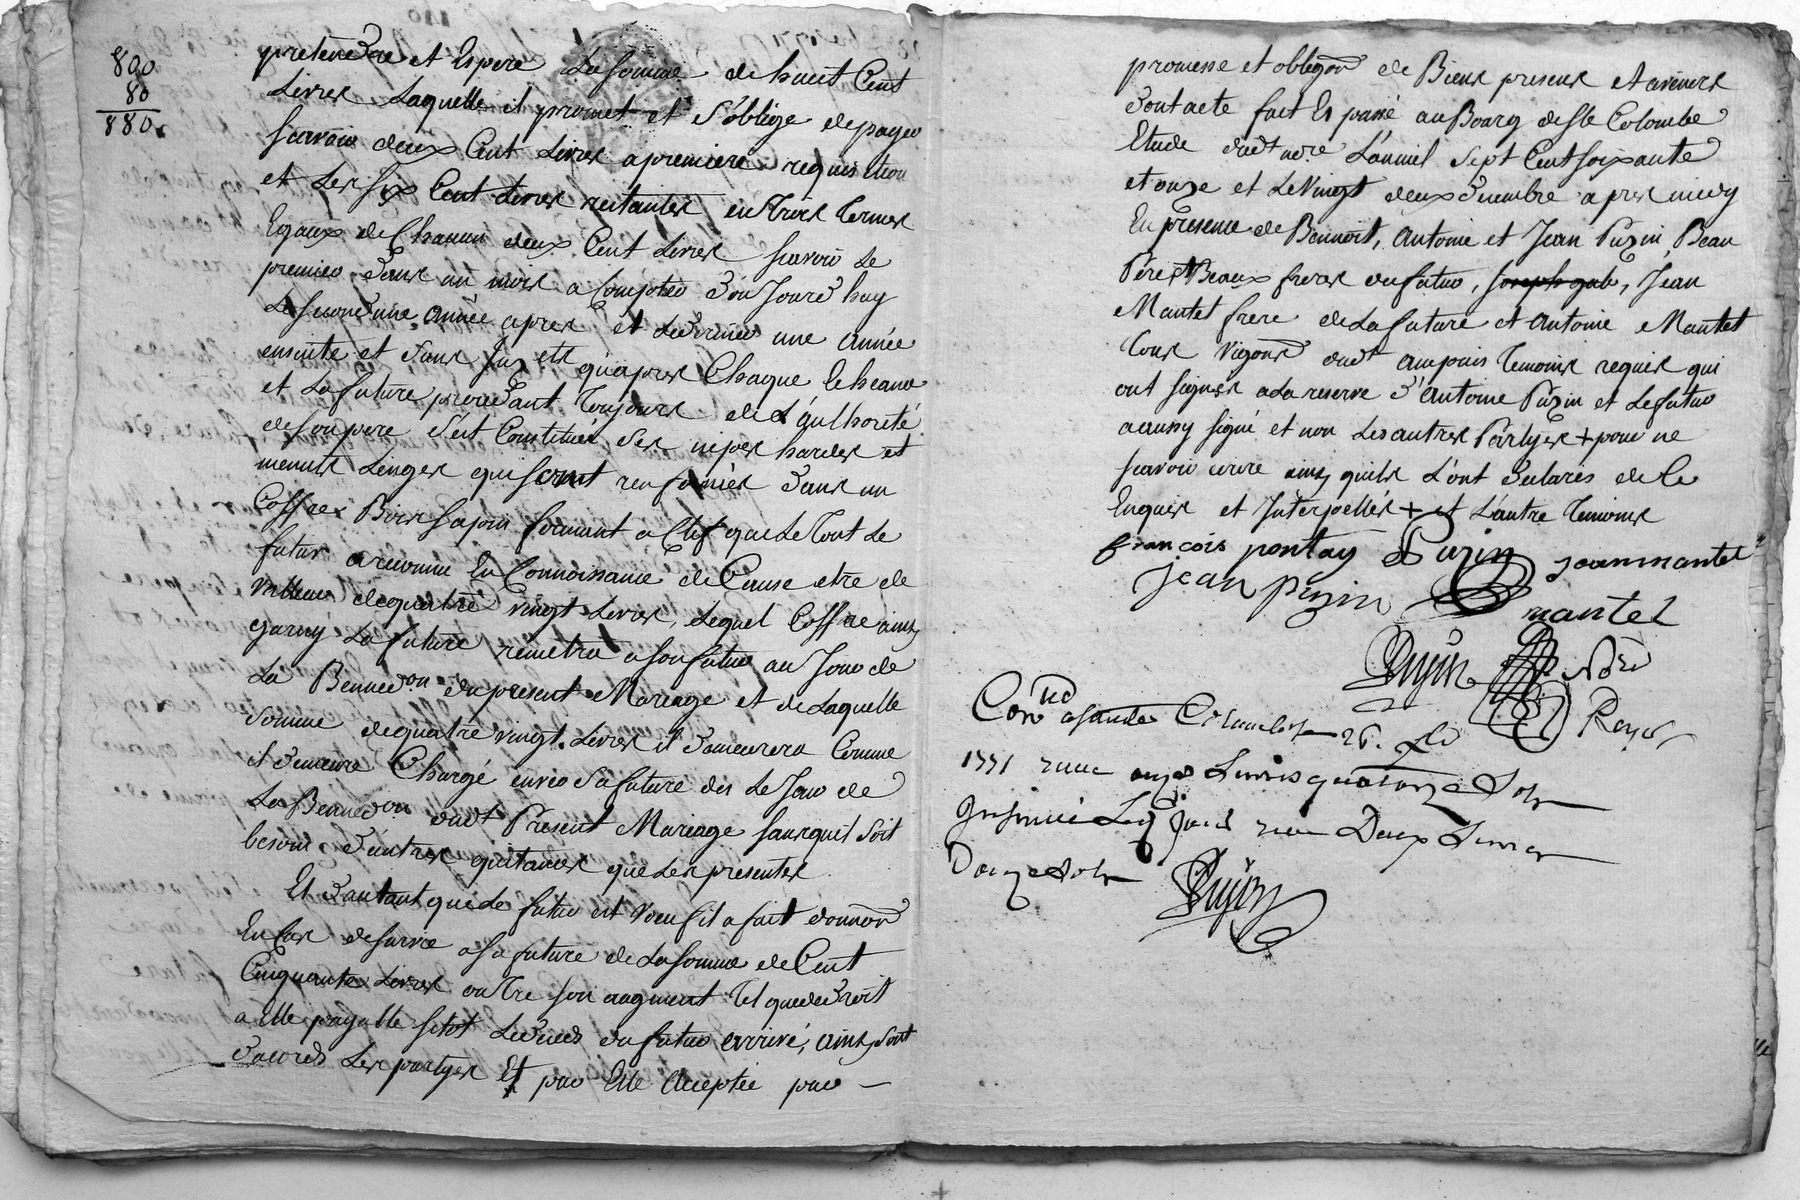 800
80
880
pretendre et Espere La somme de huit Cent
Livres Laquelle il promet et s'oblige de payer
scavoir deux Cent Livres a premiere requisition
et Les six Cent Livres restantes en trois termes
Egaux de Chacun deux Cent Livres scavoir Le
premier dans un mois a Compter d'ou Jourd'huy
Le second une année apres et Le dernier une année
ensuite et sans qu'apres Chaque Echeance
et La future procedant toujours de L'authorité
de son pere s'est Constitués ses nipes hardes et
menuts Linges qui sont renfermés dans un
Coffre Bois sapin fermant a Clef que Le tout Le
futur a reconnu En Connoissance de Cause etre de
valleur de quatre vingt Livres, Lequel Coffre ainsy
garny La future remettra a son futur au Jour de
La Benned.on du present Mariage et de Laquelle
somme de quatre vingt Livres il demeurera Comme
il demeure Chargé envers sa future des Le Jour de
La Benned.on dudt Present Mariage sans quil soit
besoin d'autres quitances que Les presentes
Et d'autant que Le futur est veuf il a fait donnaon
En Cas de survie a sa future de La somme de Cent
Cinquante Livres outre son augment tel que de droit
a Elle payable sitot Le deces du futur arrivé, ainsy sont
d'acords Les partyes Et par Elle aceptée par
promesse et obligaon de Biens presens et avenirs
dont acte fait Et passé au Bourg de Ste Colombe
Etude dudt nore L'an mil sept Cent soixante
et onze et Le vingt deux decembre apres midy
En presence de Bennoit, Antoine et Jean Puzin, Beau
Pére et Beaux freres du futur, Jean
Mantel frere de La future et Antoine Mantel
tous Vigons dudt Ampuis temoins requis qui
ont signés a la reserve d'Antoine Puzin et Le futur
a aussy signé et non Les autres Partyes + pour ne
scavoir ecrire ainsy quils L'ont declarés de Ce
Enquis et Interpellés + et L'autre temoins
françois pontay Puzin jean mantel
Jean puzin
mantel
Dujin Nore
Con.lé a sainte Colombe le 26. Xbre Royal
1771 recu onze Livres quatorze Sols
Insinué Led Jour recu Deux Livres
Douze Sols Dujin